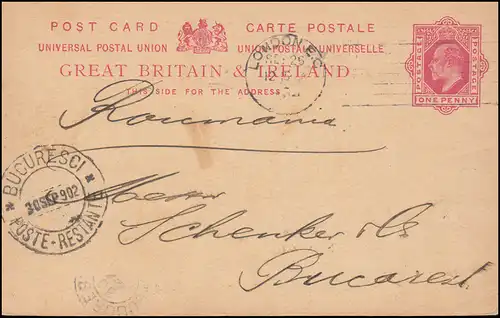 POST CARD
CARTE POSTALE
UNIVERSAL POSTAL UNION
UNION POSTALE UNIVERSELLE
GREAT BRITAIN & IRELAND
THIS SIDE FOR THE ADDRESS.
POSTAGE
POSTAGE
ONE PENNY
LONDON E.C
Roumania
BUCURESCI
30SEP902
POSTE-RESTANT
Schenker & Co
Bucarest